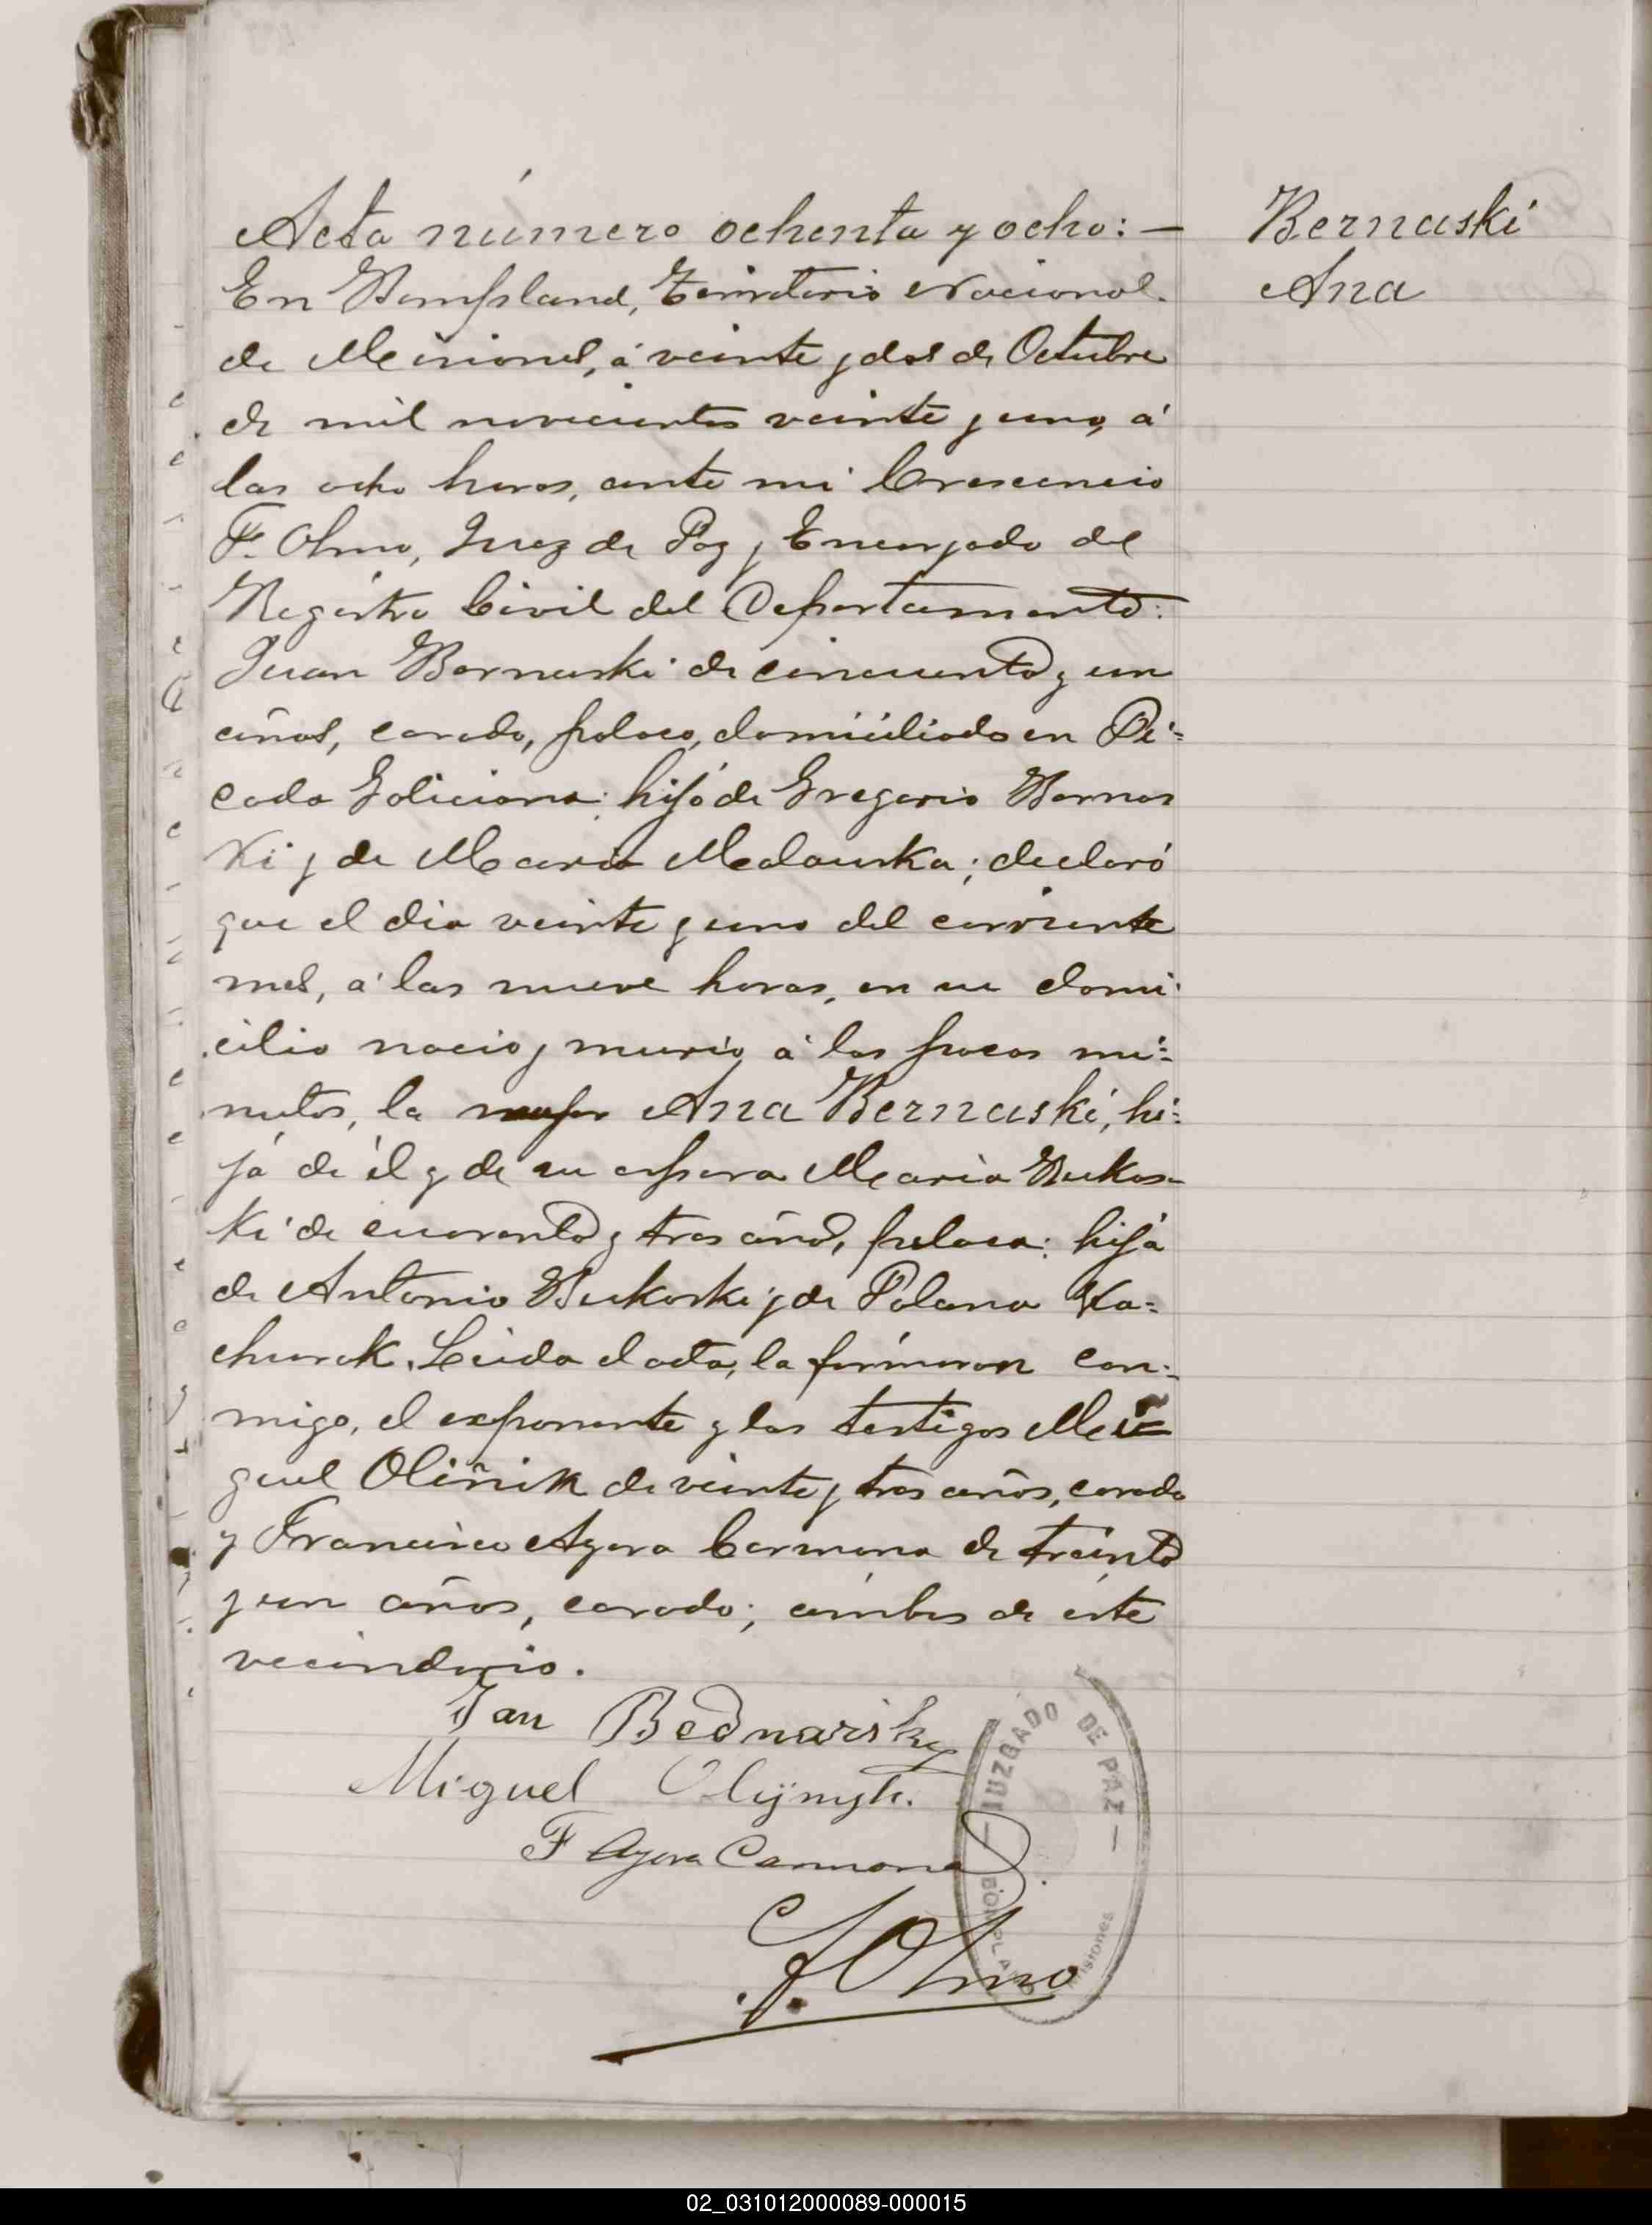 Acta número ochenta y ocho: —
Bernaski
Ana
En Bompland, Territorio Nacional
de Misiones, á veinte y dos de Octubre
de mil novecientos veinte y uno, á
las ocho horas, ante mi Crescencio
F. Olmo, Juez de Paz y Encargado del
Registro Civil del Departamento:
Juan Bernaski de cincuenta y un
años, casado, polaco, domiciliado en Pi=
cada Galiciana; hijo de Gregorio Bernas
ki y de Maria Medauska; declaró
que el dia veinte y uno del corriente
mes, á las nueve horas, en su domi-
cilio nació y murió, á los pocos mi=
nutos, la mujer Ana Bernaski, hi=
já de él y de su esposa Maria Bukos-
ki de cuarenta y tres años, polaca; hijá
de Antonio Bukoski y de Polana Ka=
churok. Leida el acta, la firmaron con=
migo, el exponente y los testigos Mi=
guel Oliñik de veinte y tres años, casado
y Francisco Ayora Carmona de treinta
y un años, casado; ambos de éste
vecindario.
Jan Bednarsky
Miguel Olijnyk.
F Ayora Carmona
C F Olmo
JUZGADO DE PAZ —
BONPLAND
Misiones
02_031012000089-000015